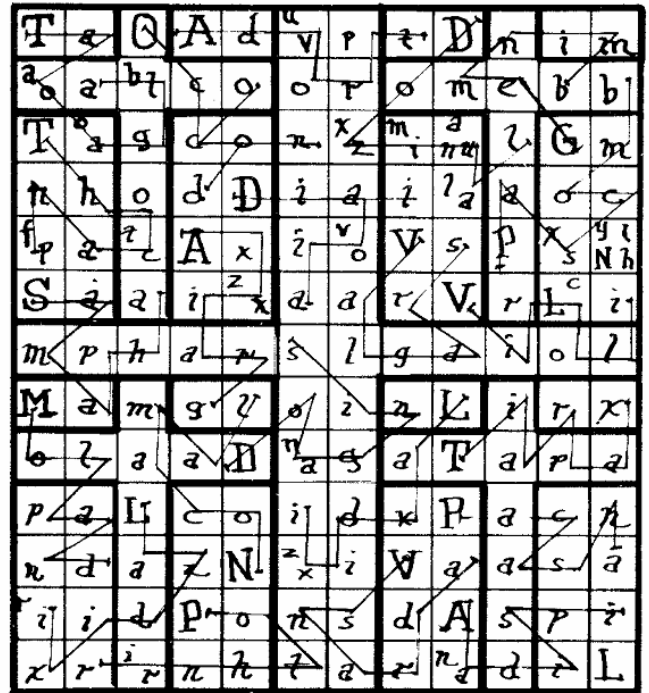 T a Q A d uv p t D n i m
ao a bl c o o r o m e b b
T oa g c o n xz mi anu l G m
n h o d D i a i la a o c
fp a tc A x i vo V s P xs yiNh
S i a i zx a a r V r Lc i
m p h a r s l g d i o l
M a m g l o i n L i r x
o l a a D na g a T a p a
p a L c o i d x P a c n
n d a z N zx i V a a s a
ri i d P o n s d A s p i
x r ir n h t a r na d i L